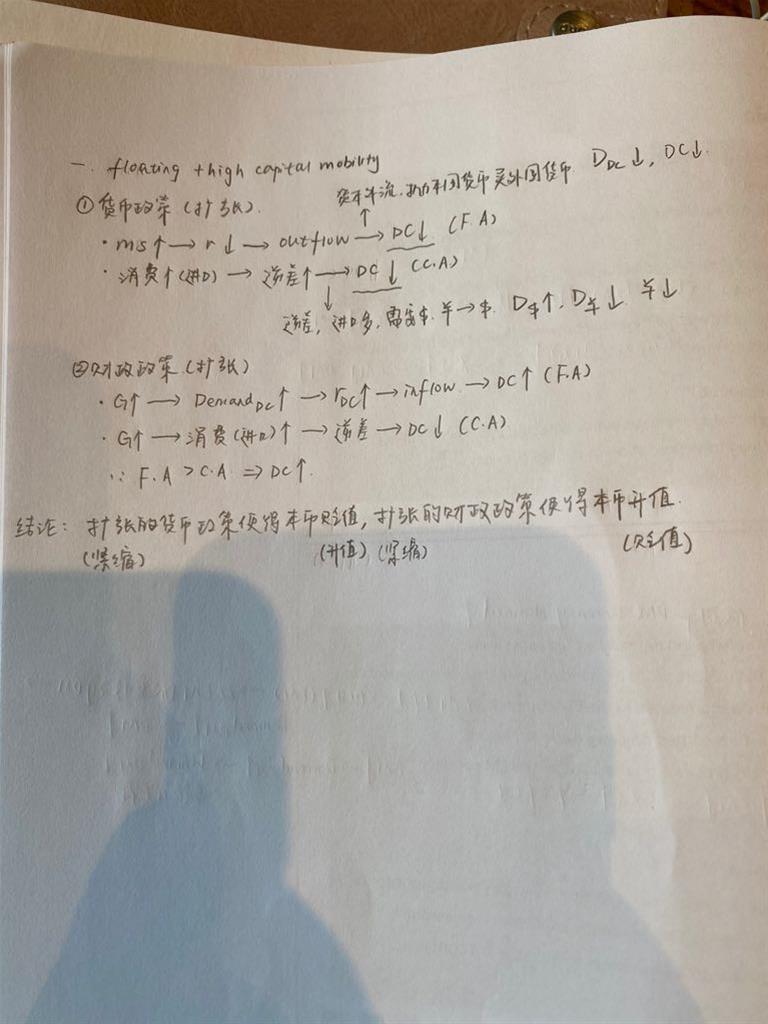 一. floating + high capital mobility
资本外流, 抛本国货币买外国货币. D_DC↓, DC↓.
①货币政策 (扩张).
· ms↑→r↓→outflow→DC↓ (F.A)
· 消费↑(进口)→逆差↑→DC↓ (C.A)
逆差, 进口多, 需要$. ¥→$. D$↑, D¥↓. ¥↓
②财政政策. (扩张)
· G↑→Demand_DC↑→r_DC↑→inflow→DC↑ (F.A)
· G↑→消费(进口)↑→逆差→DC↓ (C.A)
∵ F.A > C.A ⇒ DC↑.
结论: 扩张的货币政策使得本币贬值, 扩张的财政政策使得本币升值.
(紧缩) (升值) (紧缩) (贬值)